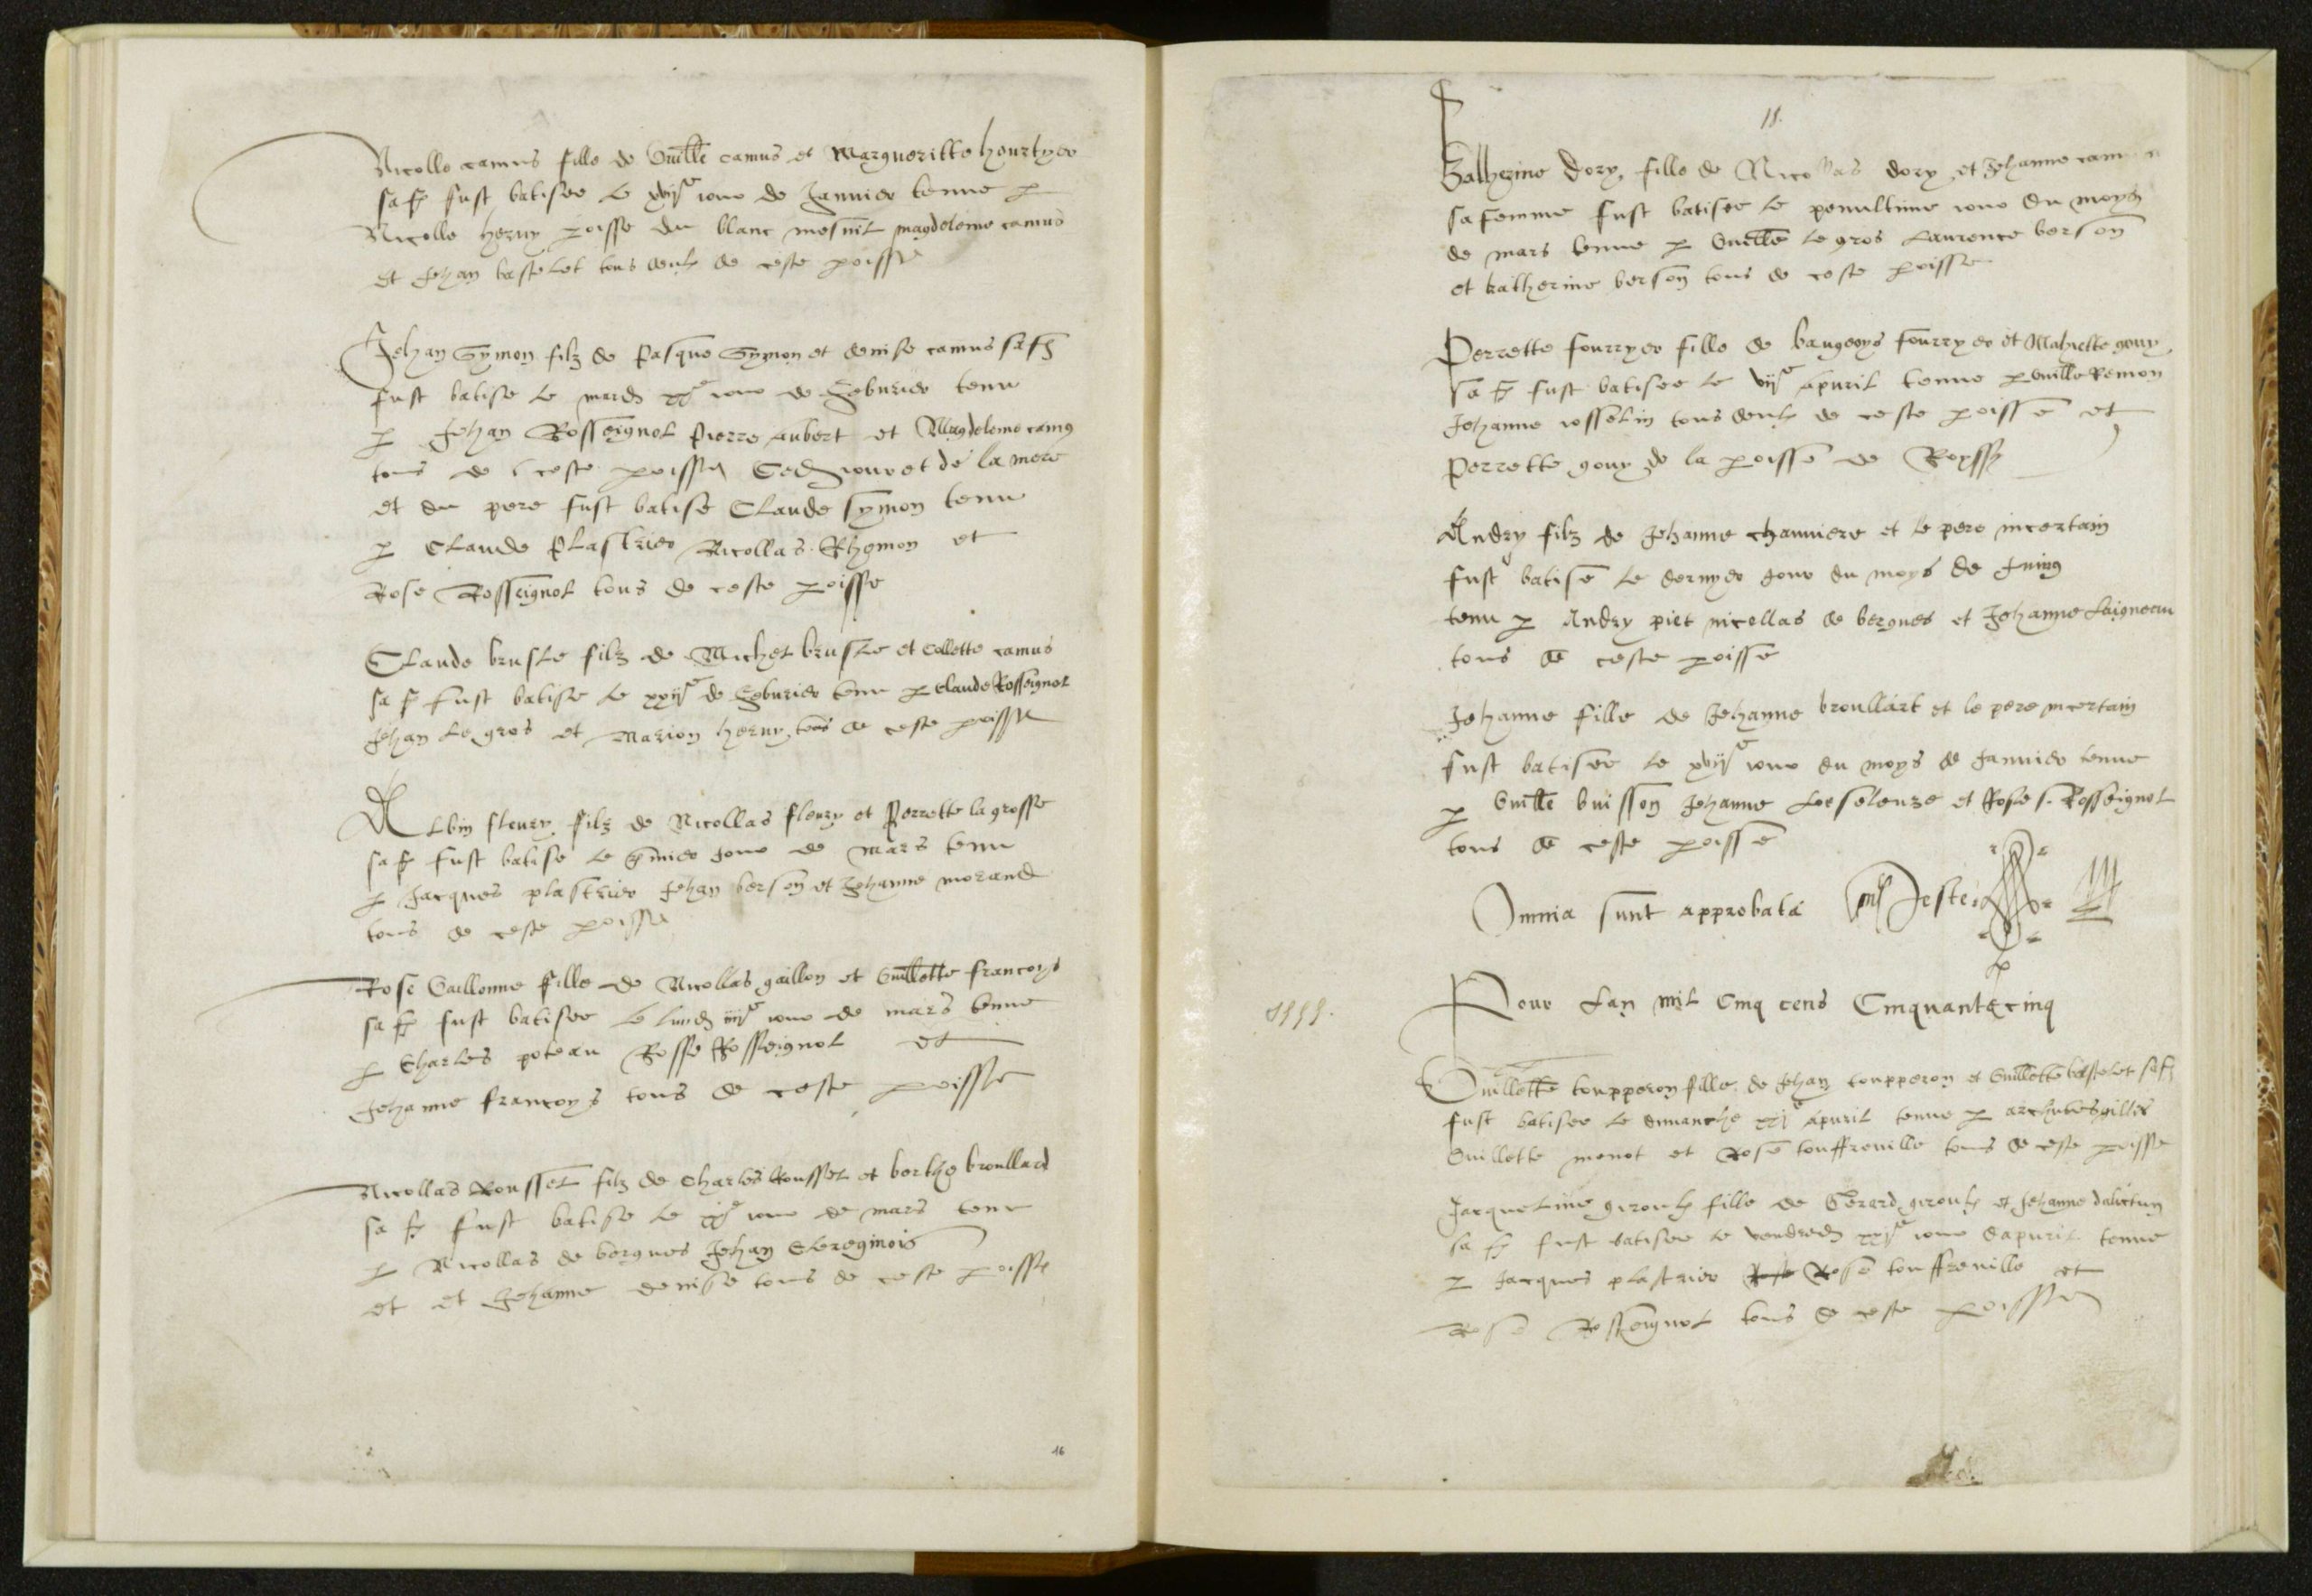 Nicolle camus fille de Guille camus et Margueritte hourtyer
sa fe fust batisee le xviije jour de Janvier tenue p
Nicolle herny poisse du blanc mesnil magdeleine camus
et Jehan bastelet tous deulx de ceste poisse
Jehan Symon filz de Pasque Symon et denise camus sa fe
fust batise le mardi xxe jour de Feburier tenu
p Jehan Rosseignol Pierre Aubert et Magdeleine camus
tous de ceste poisse jour et de la mere
et du pere fust batise Claude Symon tenu
p Claude Plastrier Nicollas Rhemon et
Rose Rosseignol tous de ceste poisse
Claude brusle filz de Michel brusle et Collette camus
sa fe fust batise le xxije de Feburier tenu p Claude Rosseignol
Jehan le gros et Marion herny tous de ceste poisse
Albin fleury filz de Nicollas fleury et Perrette la grosse
sa fe fust batise le pmier jour de mars tenu
p Jacques plastrier Jehan berson et Jehanne morand
tous de ceste poisse
Rose Gaillonne fille de Nicollas gaillon et Guillette francoys
sa fe fust batisee le lundi iiije jour de mars tenue
p Charles poteau Rosse Rosseignol et
Jehanne francoys tous de ceste poisse
Nicollas Rousset filz de Charles Rousset et berthe broullard
sa fe fust batise le xxe jour de mars tenu
p Nicollas de bergues Jehan
et et Jehanne denise tous de ceste poisse
16
18.
Katherine dory fille de Nicollas dory et Jehanne
sa femme fust batisee le penultime jour du moys
de mars tenue p Guille le gros Laurence berson
et katherine berson tous de ceste poisse
Perrette fourryer fille de baugeoys fourryer et Mahiette gouy
sa fe fust batisee le viije apuril tenue p Guille Remon
Jehanne rosselin tous deulx de ceste poisse et
Perrette gouy de la poisse de Royssy
Andry filz de Jehanne chanviere et le pere incertain
fust batise le dernyer jour du moys de Juing
tenu p Andry piet nicollas de bergues et Jehanne Laigneau
tous de ceste poisse
Jehanne fille de Jehanne broullart et le pere incertain
fust batisee le xviije jour du moys de Janvier tenue
p Guille buisson Jehanne et Rose Rosseignol
tous de ceste poisse
Omnia sunt approbata
1555.
Pour Lan mil Cinq cens Cinquante cinq
Guillette toupperon fille de Jehan toupperon et Guillette bastelet sa fe
fust batisee le dimanche xxj apuril tenue p gilles
Guillette menot et Rose touffreville tous de ceste poisse
Jacqueline giroulx fille de Gerard giroulx et Jehanne
sa fe fust batisee le vendredi jour dapuril tenue
p Jacques plastrier Rose Rose touffreville et
Rose Rosseignol tous de ceste poisse